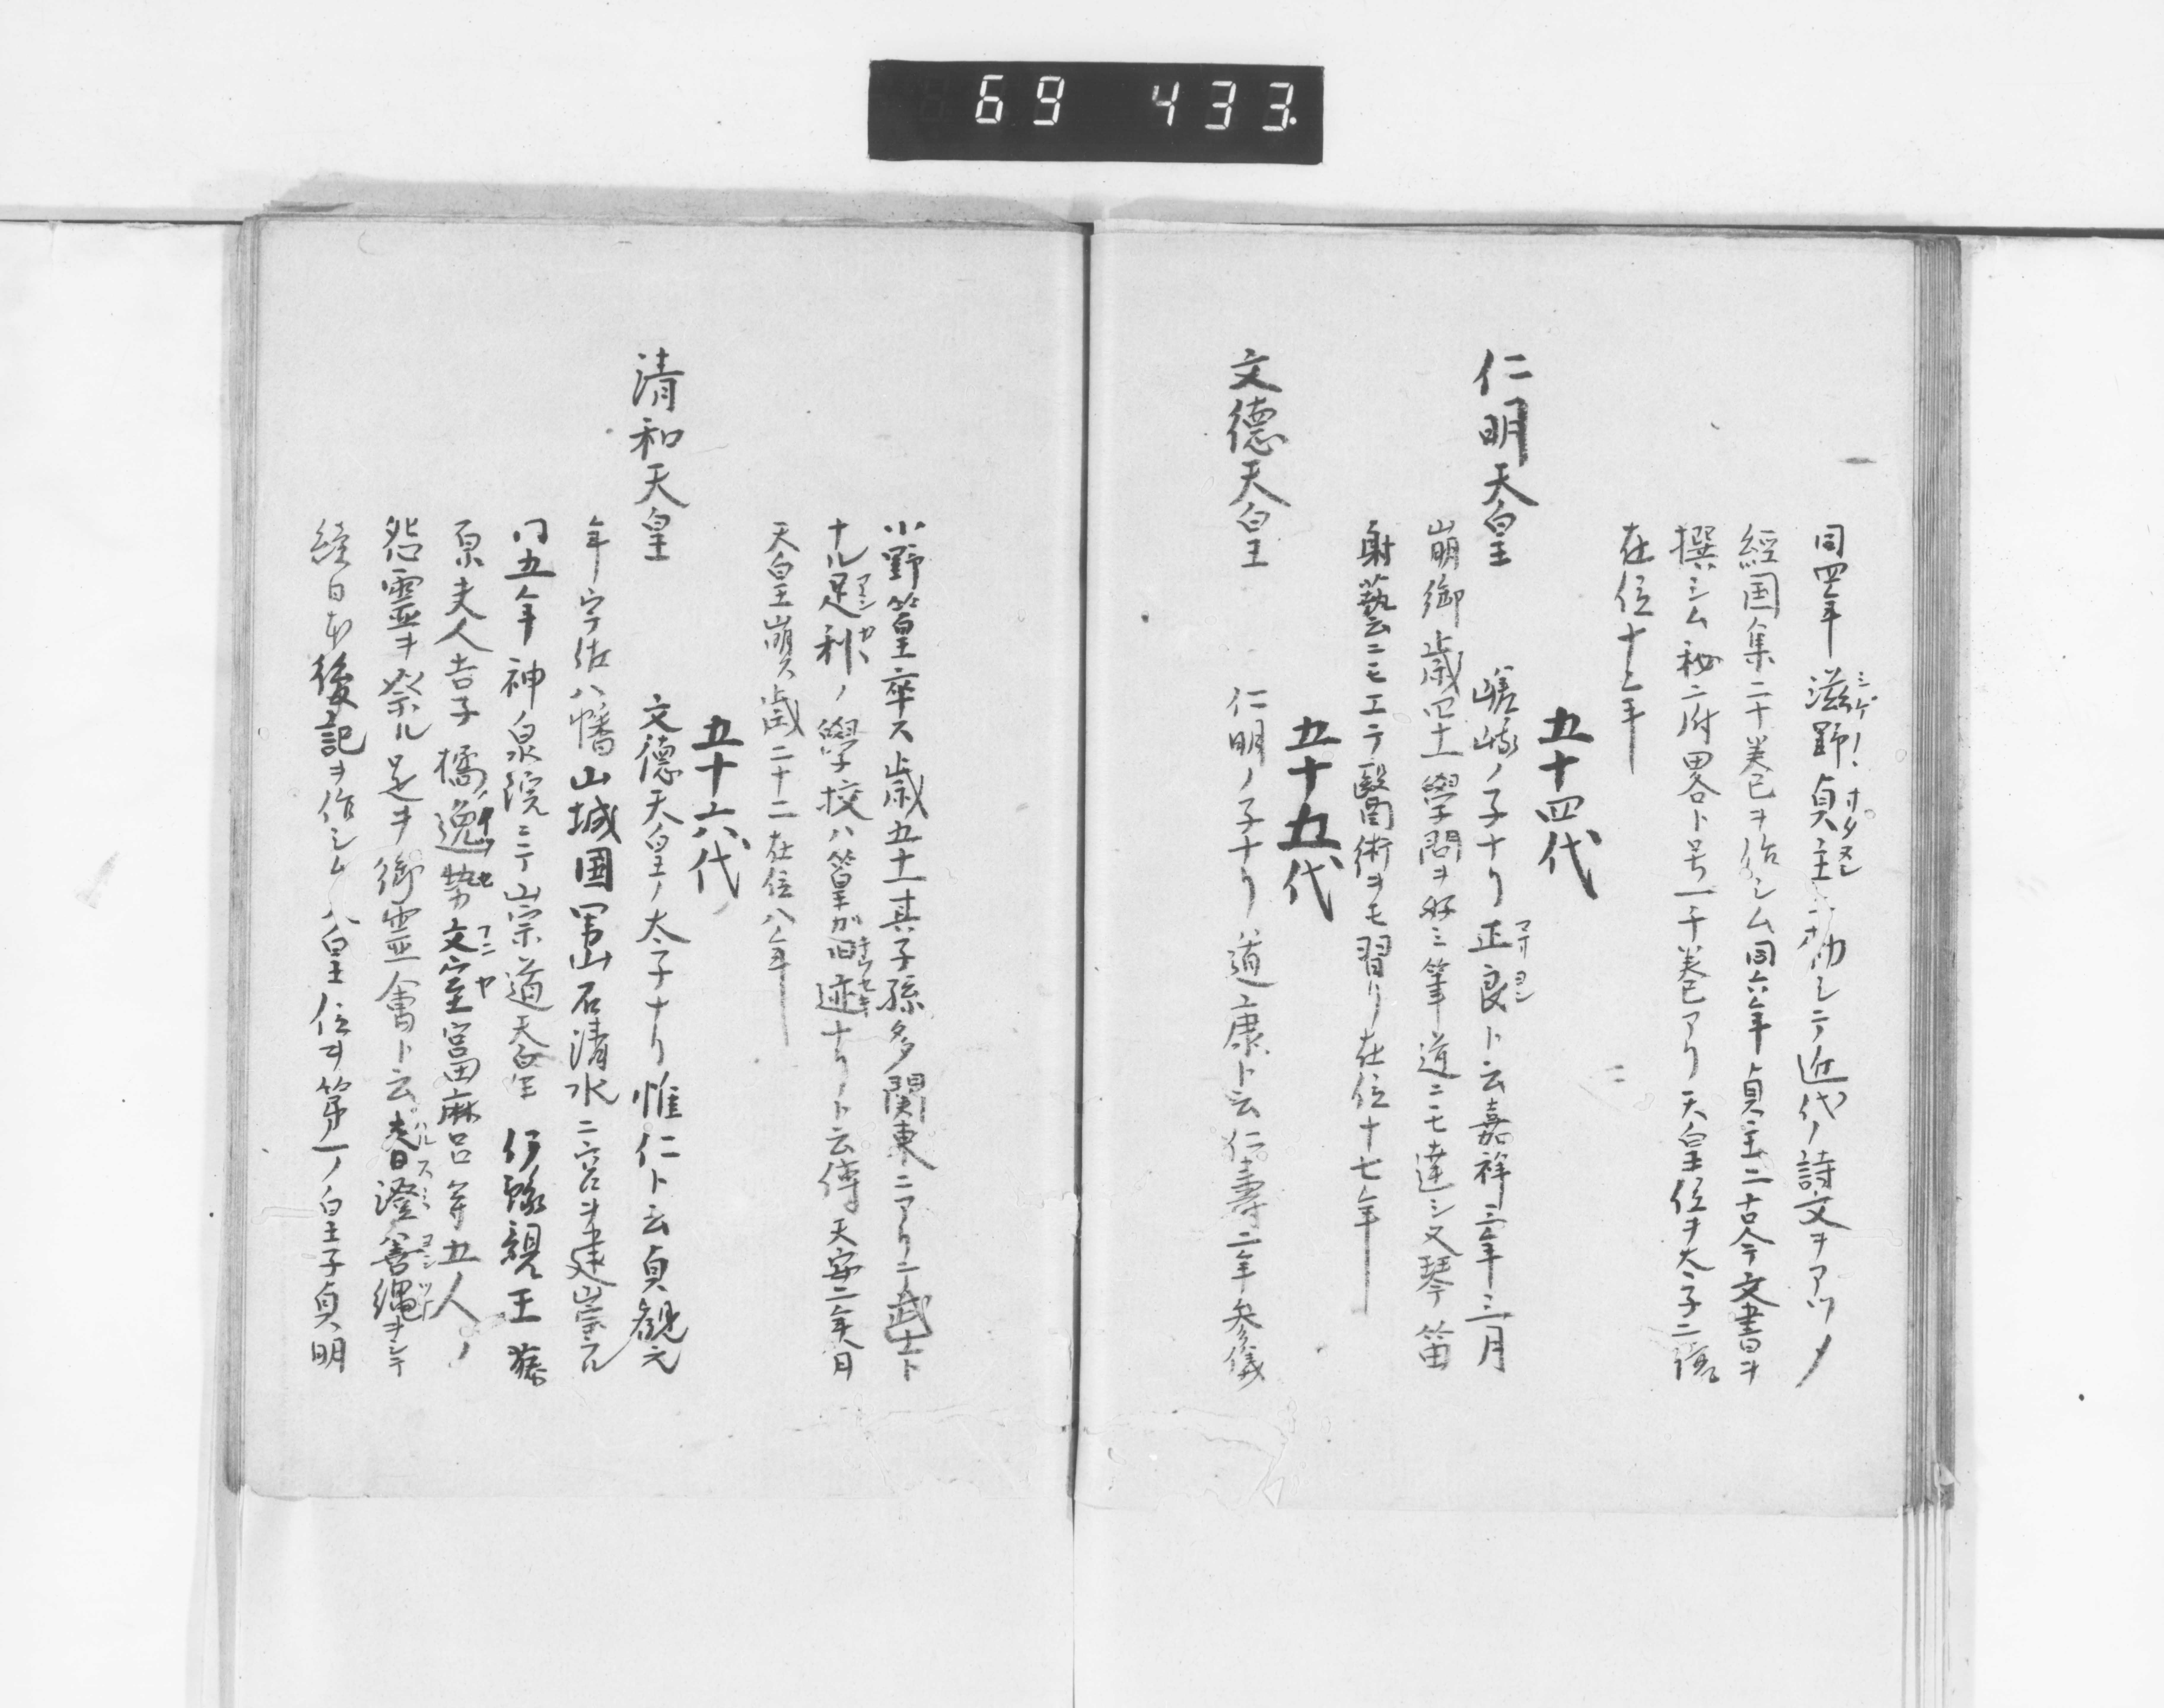 69 433.
同四年滋野貞主ニ勅シテ近代ノ詩文ヲアツメ
經国集二十巻ヲ作シム同六年貞主ニ古今文書ヲ
撰シム秘府畧ト号一千巻アリ天皇位ヲ太子ニ譲
在位十年
五十四代
仁明天皇 嵯峨ノ子ナリ正良ト云嘉祥三年三月
崩御歳四十一學問ヲ好ミ筆道ニモ達シ又琴笛
射藝ニモエテ醫術ヲモ習リ在位十七年
五十五代
文德天皇 仁明ノ子ナリ道康ト云仁壽二年参儀
小野篁卒ス歳五十一其子孫多関東ニアリテ武士ト
ナル足利ノ學校ハ篁ガ旧迹ナリト云傳天安二年八月
天皇崩ス歳二十二在位八年
五十六代
清和天皇 文德天皇ノ太子ナリ惟仁ト云貞観元
年宇佐八幡山城国男山石清水ニ宮ヲ建崇ル
同五年神泉院ニテ崇道天皇伊豫親王藤
原夫人吉子橘逸勢文室宮田麻呂等五人ノ
怨霊ヲ祭ル是ヲ御霊會ト云春澄善縄ヲシテ
続日本後記ヲ作シム八皇位ヲ第一ノ皇子貞明